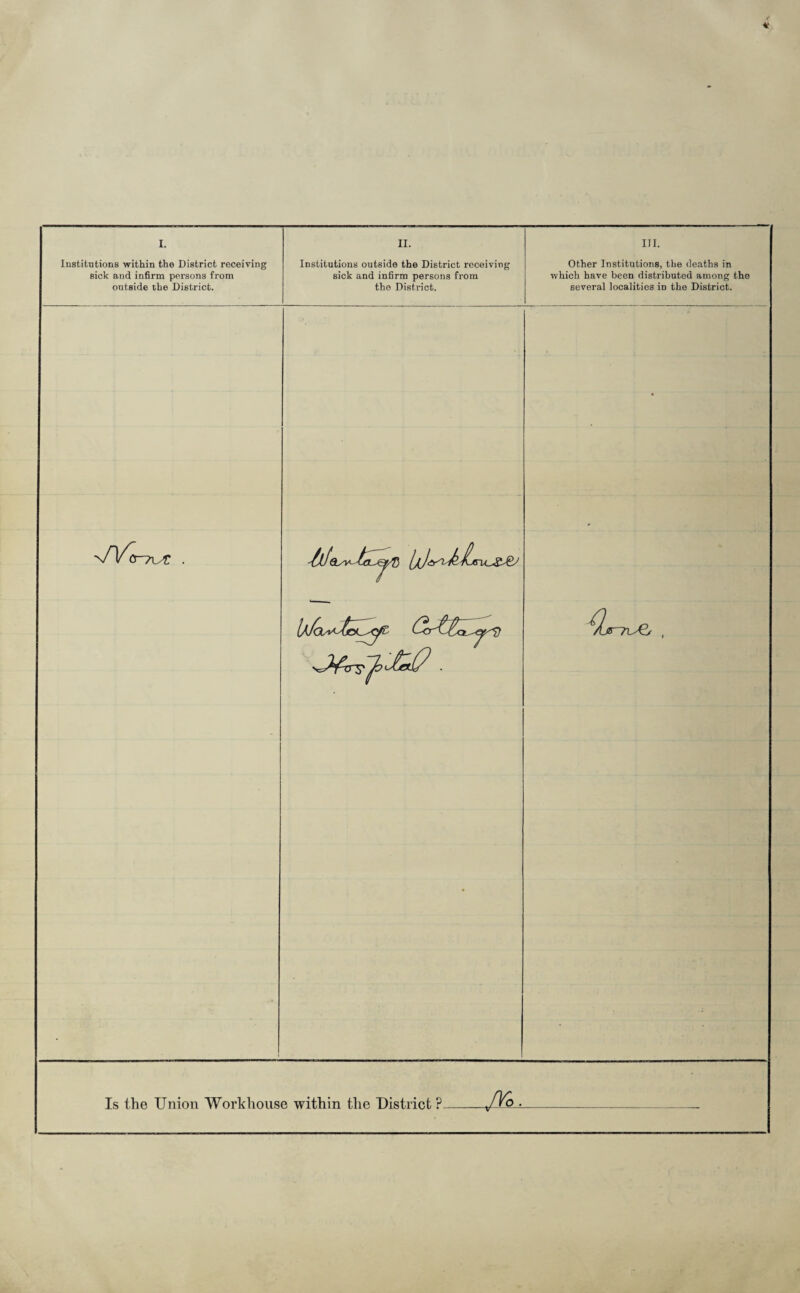 I.
Institutions within the District receiving
sick and infirm persons from
outside the District.
II.
Institutions outside the District receiving
sick and infirm persons from
the District.
III.
Other Institutions, the deaths in
which have been distributed among the
several localities in the District.
None .
Wantage Workhouse
Wantage Cottage
Hospital .
None ,
Is the Union Workhouse within the District ? No .